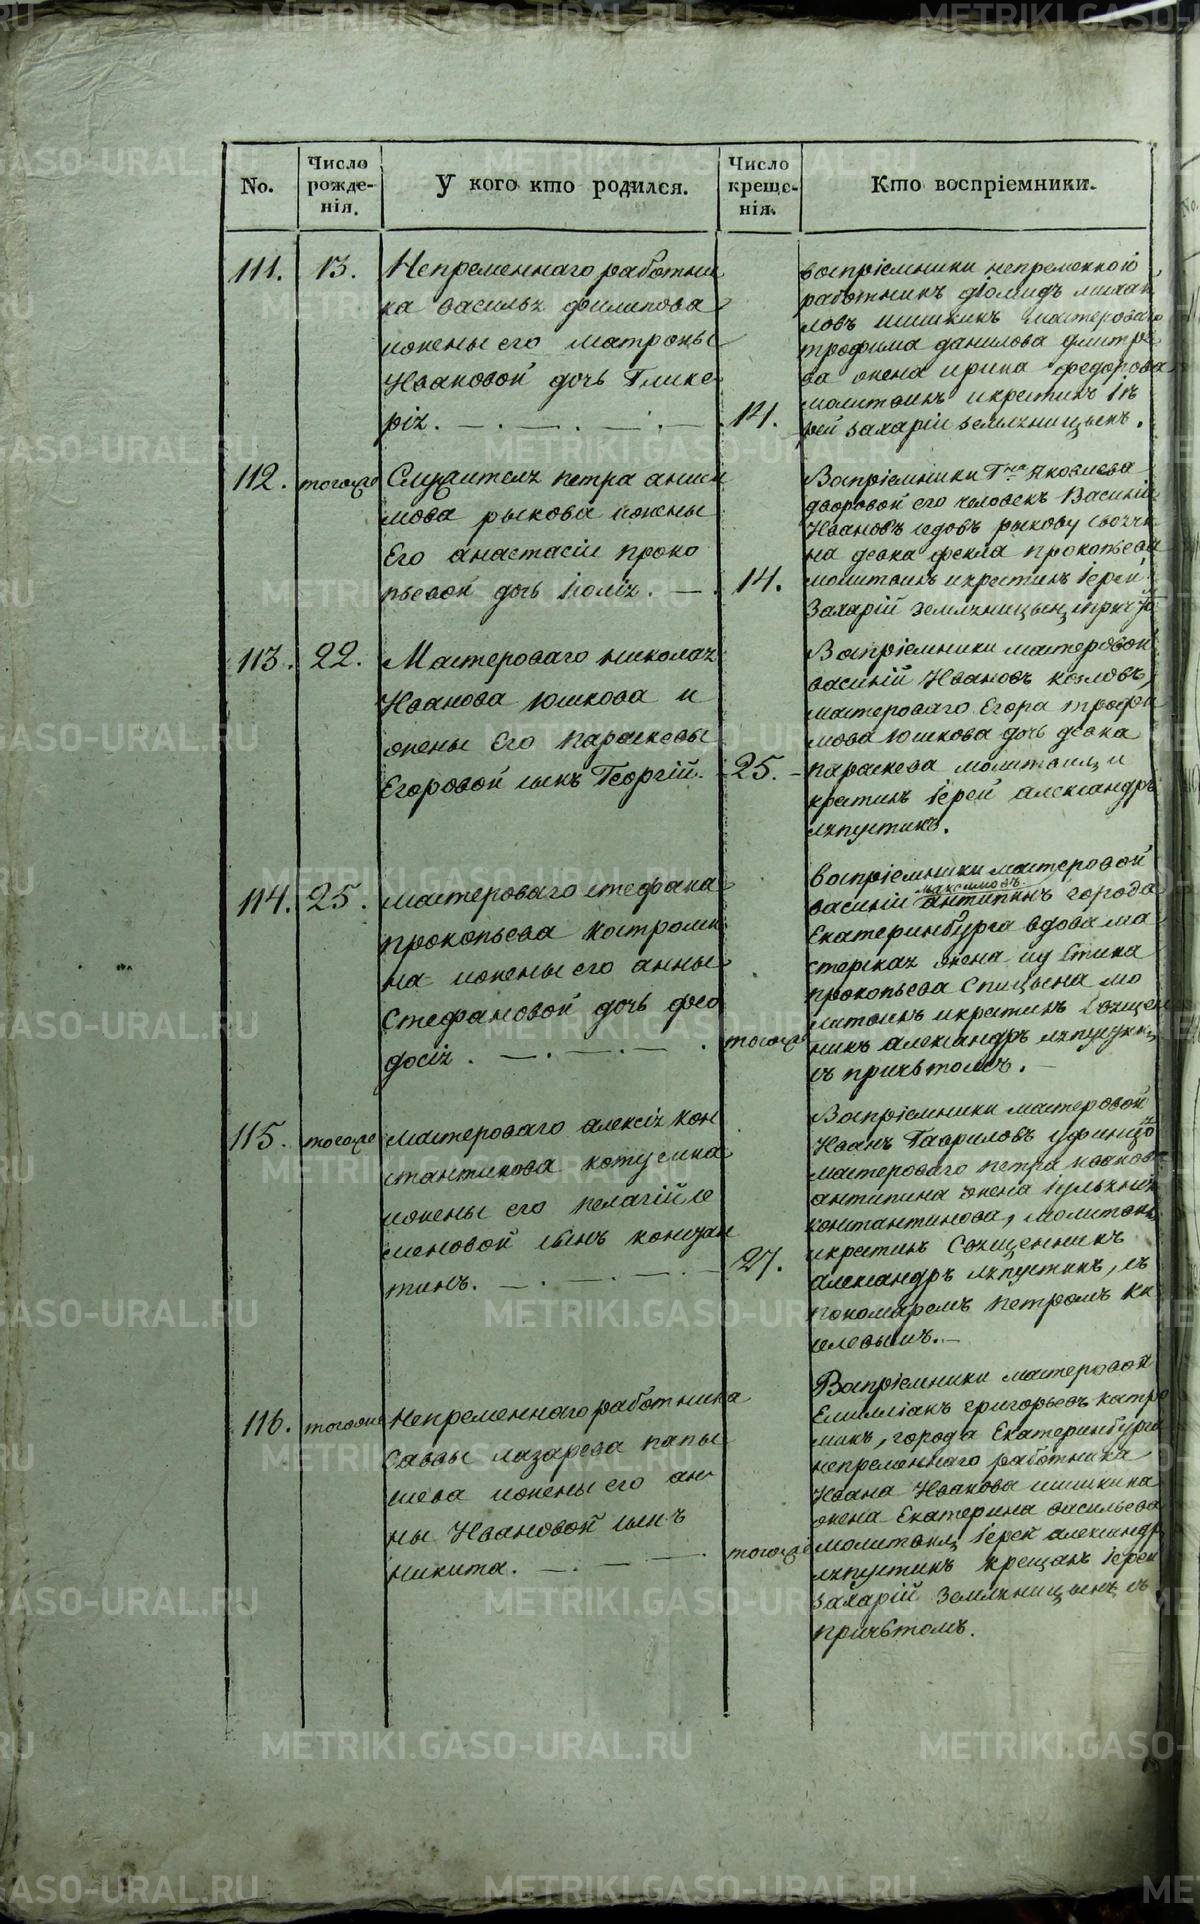 No.
Число
рожде-
нія.
У кого кто родился.
Число
креще-
нія.
Кто воспріемники.
111.
13.
Непременнаго работни
ка василья филипова
ижены его матроны
Ивановой дочь Глике
рія.
14.
воспріемники непременной
работникъ діомидъ михаи
ловъ шишкинъ мастероваго
трофима данилова дмитріе
ва жена ирина федорова
молитвилъ икрестилъ іе
рей захарій земляницынъ.
112.
тогоже
Служителя петра аниси
мова рыкова ижены
Его анастасіи проко
пьевой дочь Іюлія.
14.
Воспріемники Гна Яковлева
дворовой его человекъ Василій
Ивановъ
рыкову
на девка фекла прокопьева
молитвилъ икрестилъ іерей
Захарій земляницынъ
113.
22.
Мастероваго николая
Иванова юшкова и
жены Его параскевы
Егоровой сынъ Георгій.
25.
Воспріемники мастеровой
василій Ивановъ козловъ,
мастероваго Егора трофи
мова юшкова дочь девка
параскева молитвилъ и
крестилъ іерей александръ
ляпустинъ.
114.
25.
мастероваго стефана
прокопьева костроми
на ижены его анны
Стефановой дочь фео
досія.
тогоже
воспріемники мастеровой
максимовъ
василій антипинъ города
Екатеринбурга вдова ма
стерская жена иустина
прокопьева Спицына мо
литвилъ икрестилъ Священ
никъ александръ ляпустинъ
съ причьтомъ.
115.
тогоже
мастероваго алексія кон
стантинова котугина
ижены его пелагіи се
меновой сынъ констан
тинъ.
27.
Воспріемники мастеровой
Иванъ Гавриловъ
мастероваго петра иванова
антипина жена
константинова, молитвилъ
икрестилъ Священникъ
александръ ляпустинъ, съ
пономаремъ петромъ Ки
селевымъ.
116.
тогоже
Непременнаго работника
Саввы лазарева папы
шева ижены его ан
ны Ивановой сынъ
никита.
тогоже
Воспріемники мастеровой
Емилліанъ григорьевъ катро
минъ, города Екатеринбурга
непременнаго работника
Ивана Иванова шишкина
жена Екатерина васильева
молитвилъ іерей александръ
ляпустинъ крещалъ іерей
захарій земляницынъ съ
причьтомъ.
METRIKI.GASO-URAL.RU